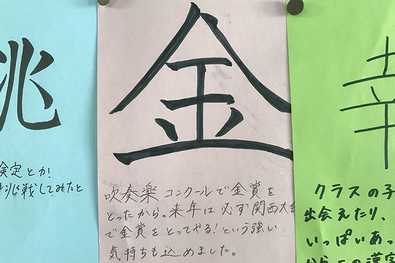 兆
検定とか!
戦してみたと
金
吹奏楽コンクールで金賞を
とったから。来年は必ず関西大会
で金賞をとってやる!という強い
気持ちも込めました。
幸
クラスの子
出会えたり、
いっぱいあっ
からこの漢字